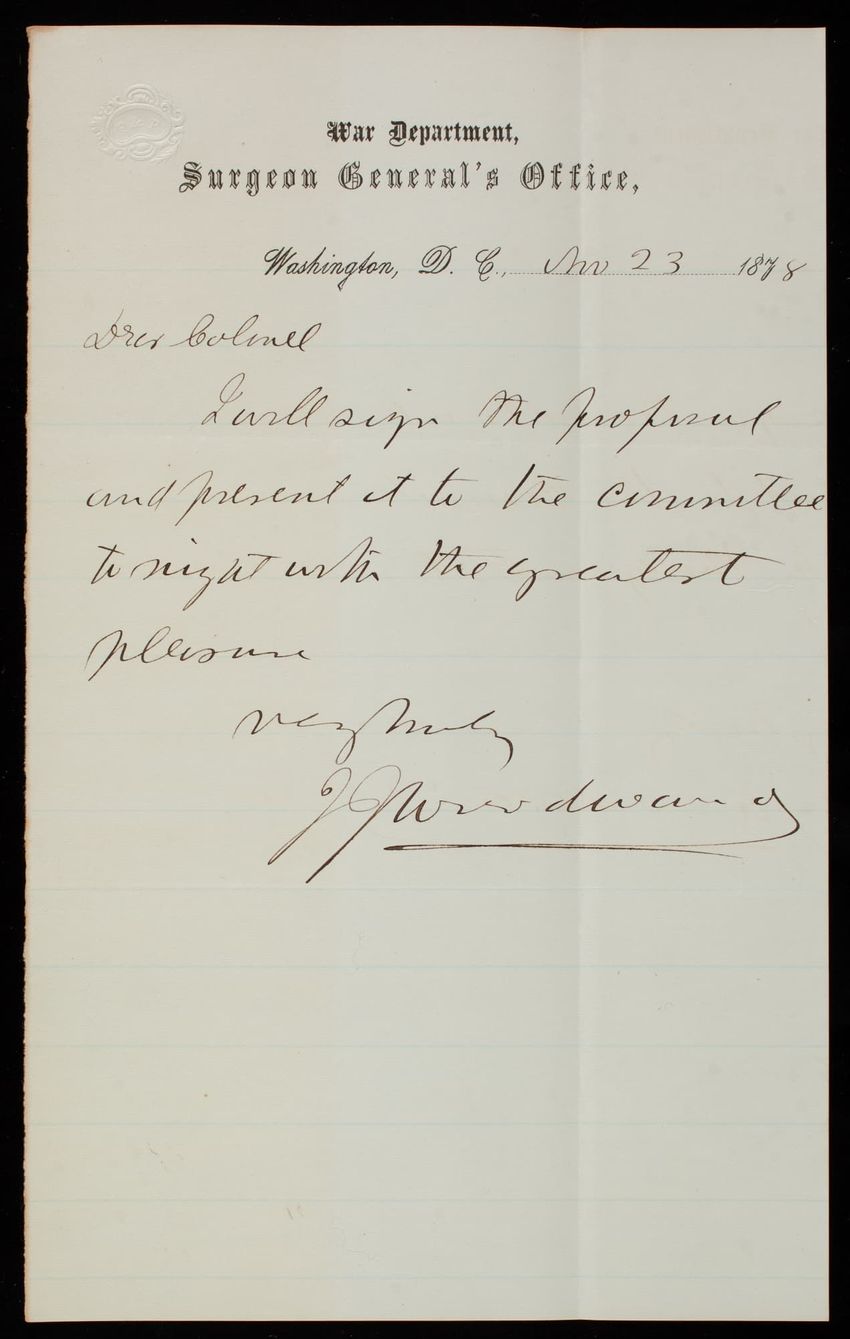 War Department,
Surgeon General's Office,
Washington, D. C., Nov 23 1878
Dear Colonel
I will sign the proposal
and present it to the committee
to night with the greatest
pleasure
Very truly
J J Woodward